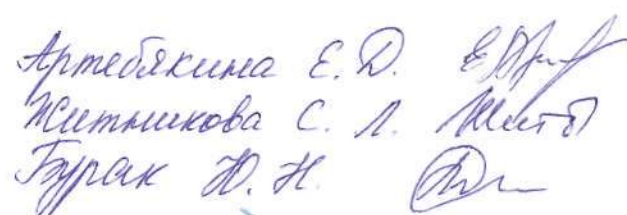 Артебякина Е. Д.
Житникова С. Л.
Бурак Ю. Н.